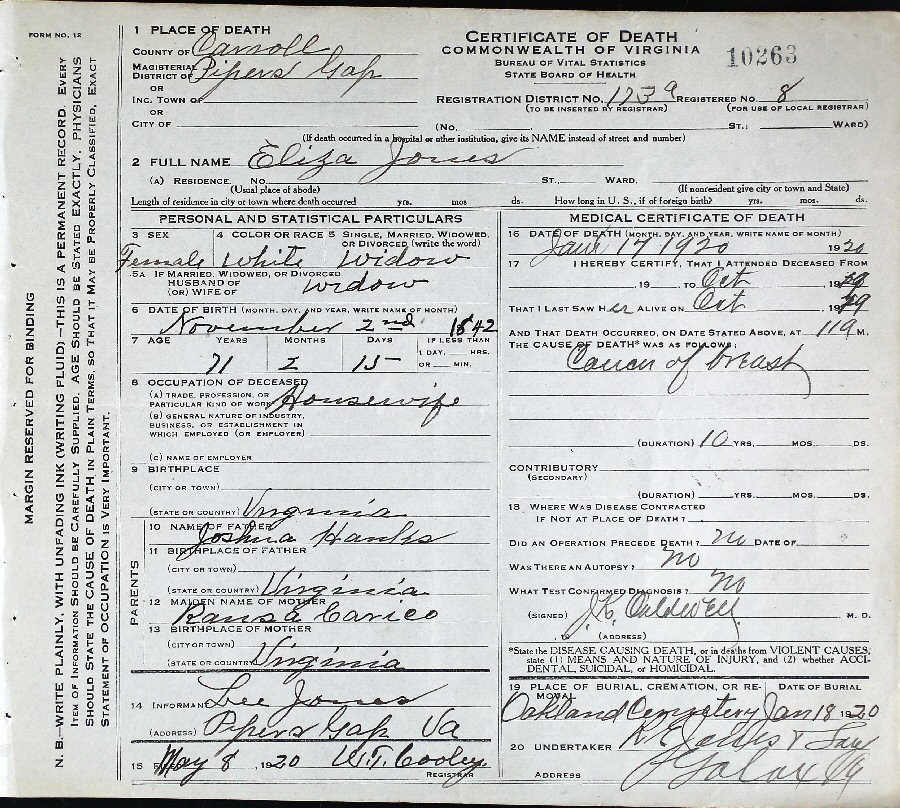 FORM NO. 12
MARGIN RESERVED FOR BINDING
N. B.—WRITE PLAINLY, WITH UNFADING INK (WRITING FLUID)—THIS IS A PERMANENT RECORD. EVERY
ITEM OF INFORMATION SHOULD BE CAREFULLY SUPPLIED. AGE SHOULD BE STATED EXACTLY. PHYSICIANS
SHOULD STATE THE CAUSE OF DEATH IN PLAIN TERMS, SO THAT IT MAY BE PROPERLY CLASSIFIED. EXACT
STATEMENT OF OCCUPATION IS VERY IMPORTANT.
1 PLACE OF DEATH
COUNTY OF Carroll
MAGISTERIAL
DISTRICT OF Pipers Gap
OR
INC. TOWN OF
OR
CITY OF
CERTIFICATE OF DEATH
COMMONWEALTH OF VIRGINIA
BUREAU OF VITAL STATISTICS
STATE BOARD OF HEALTH
10263
REGISTRATION DISTRICT NO. 173a REGISTERED NO. 8
(TO BE INSERTED BY REGISTRAR) (FOR USE OF LOCAL REGISTRAR)
(NO. ST.; WARD)
(If death occurred in a hospital or other institution, give its NAME instead of street and number)
2 FULL NAME Eliza Jones
(A) RESIDENCE. NO. ST., WARD.
(Usual place of abode) (If nonresident give city or town and State)
Length of residence in city or town where death occurred yrs. mos ds. How long in U. S., if of foreign birth? yrs. mos. ds.
PERSONAL AND STATISTICAL PARTICULARS
3 SEX 4 COLOR OR RACE 5 SINGLE, MARRIED, WIDOWED,
OR DIVORCED (write the word)
Female White Widow
5A IF MARRIED, WIDOWED, OR DIVORCED
HUSBAND OF
(OR) WIFE OF Widow
6 DATE OF BIRTH (MONTH, DAY, AND YEAR, WRITE NAME OF MONTH)
November 2nd 1842
7 AGE YEARS MONTHS DAYS IF LESS THAN
1 DAY, HRS.
OR MIN.
71 2 15
8 OCCUPATION OF DECEASED
(A) TRADE, PROFESSION, OR
PARTICULAR KIND OF WORK Housewife
(B) GENERAL NATURE OF INDUSTRY,
BUSINESS, OR ESTABLISHMENT IN
WHICH EMPLOYED (OR EMPLOYER)
(C) NAME OF EMPLOYER
9 BIRTHPLACE
(CITY OR TOWN)
(STATE OR COUNTRY) Virginia
PARENTS
10 NAME OF FATHER
Joshua Hanks
11 BIRTHPLACE OF FATHER
(CITY OR TOWN)
(STATE OR COUNTRY) Virginia
12 MAIDEN NAME OF MOTHER
Ransa Carico
13 BIRTHPLACE OF MOTHER
(CITY OR TOWN)
(STATE OR COUNTRY) Virginia
14 INFORMANT Lee Jones
(ADDRESS) Pipers Gap Va
15 May 8, 1920 W.T. Cooley
REGISTRAR
MEDICAL CERTIFICATE OF DEATH
16 DATE OF DEATH (MONTH, DAY, AND YEAR, WRITE NAME OF MONTH)
Jan 17 1920 1920
17 I HEREBY CERTIFY, THAT I ATTENDED DECEASED FROM
19 TO Oct 19
THAT I LAST SAW HER ALIVE ON Oct 19
AND THAT DEATH OCCURRED, ON DATE STATED ABOVE, AT M.
THE CAUSE OF DEATH* WAS AS FOLLOWS:
Cancer of breast
(DURATION) 10 YRS. MOS. DS.
CONTRIBUTORY
(SECONDARY)
(DURATION) YRS. MOS. DS.
18 WHERE WAS DISEASE CONTRACTED
IF NOT AT PLACE OF DEATH?
DID AN OPERATION PRECEDE DEATH? no DATE OF
WAS THERE AN AUTOPSY? no
WHAT TEST CONFIRMED DIAGNOSIS? no
(SIGNED) J.K. Caldwell M. D.
, 19 (ADDRESS)
*State the DISEASE CAUSING DEATH, or in deaths from VIOLENT CAUSES,
state (1) MEANS AND NATURE OF INJURY, and (2) whether ACCI-
DENTAL, SUICIDAL, or HOMICIDAL.
19 PLACE OF BURIAL, CREMATION, OR RE-
MOVAL DATE OF BURIAL
Oakland Cemetery Jan 18 1920
20 UNDERTAKER
ADDRESS Galax Va